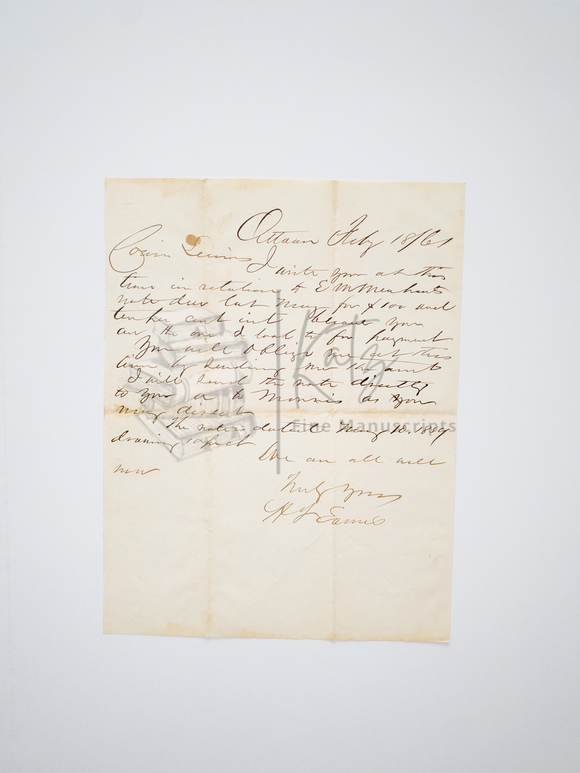 Ottawa Feby 18/61
Cousin Lewis
I write you at this
time in relation to E M
note due last May for $100 and
ten per cent int I you
are the one I look to for payment
You will oblige me at this
time by sending me the amt
I will send the note directly
to you or to Morris as you
may direct
The note is dated May 10. 1859
drawing 10 pr ct
We are all well
now
Truly Yours
H Eames
Katz
Fine Manuscripts